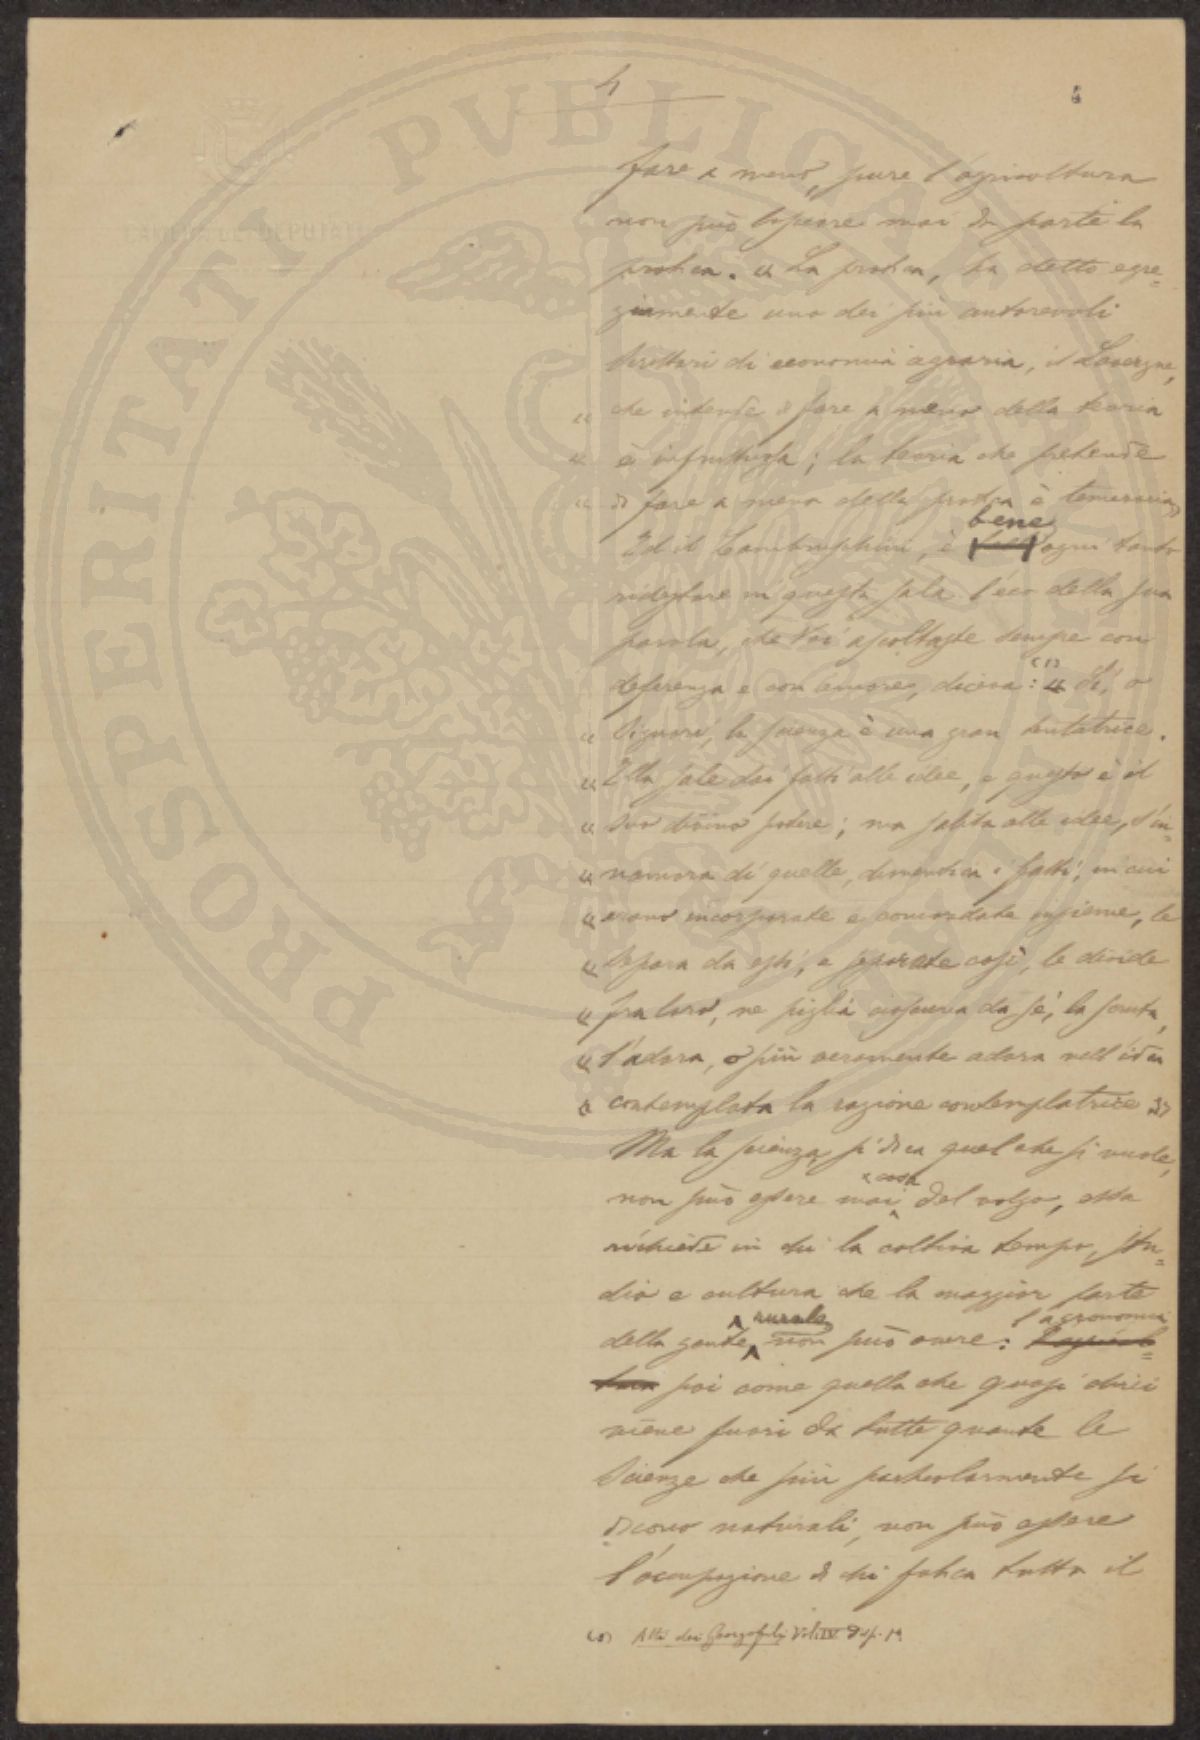 4
fare a meno, pure l'agricoltura
non può lasciare mai da parte la
pratica. « La pratica, ha detto egre=
giamente uno dei più autorevoli
scrittori di economia agraria, il Lavergne,
« che intende di fare a meno della teoria
« è infruttuosa; la teoria che pretende
« di fare a meno della pratica è temeraria »
Ed il Lambruschini, è bene ogni tanto
ridestare in questa sala l'eco della sua
parola, che Voi ascoltaste sempre con
deferenza e con amore, diceva: (1) « Sì, o
« Signori, la scienza è una gran tentatrice.
« Ella sale dai fatti alle idee, e questo è il
« suo divino potere; ma salita alle idee, s'in=
« namora di quelle, dimentica i fatti, in cui
« erano incorporate e concordate insieme, le
« separa da essi, e separate così, le divide
« fra loro, ne piglia ciascuna da sé, la scruta,
« l'adora, o più veramente adora nell'idea
« contemplata la ragione contemplatrice »
Ma la scienza, si dica quel che si vuole,
non può essere mai cosa del volgo, essa
richiede in chi la coltiva tempo, stu=
dio e cultura che la maggior parte
della gente rurale non può avere: l'agronomia
poi come quella che quasi direi
viene fuori da tutte quante le
scienze che più particolarmente si
dicono naturali, non può essere
l'occupazione di chi fatica tutto il
(1) Atti dei Georgofili Vol. IV Disp. 1ª
PROSPERITATI PVBLICAE
CAMERA DEI DEPUTATI